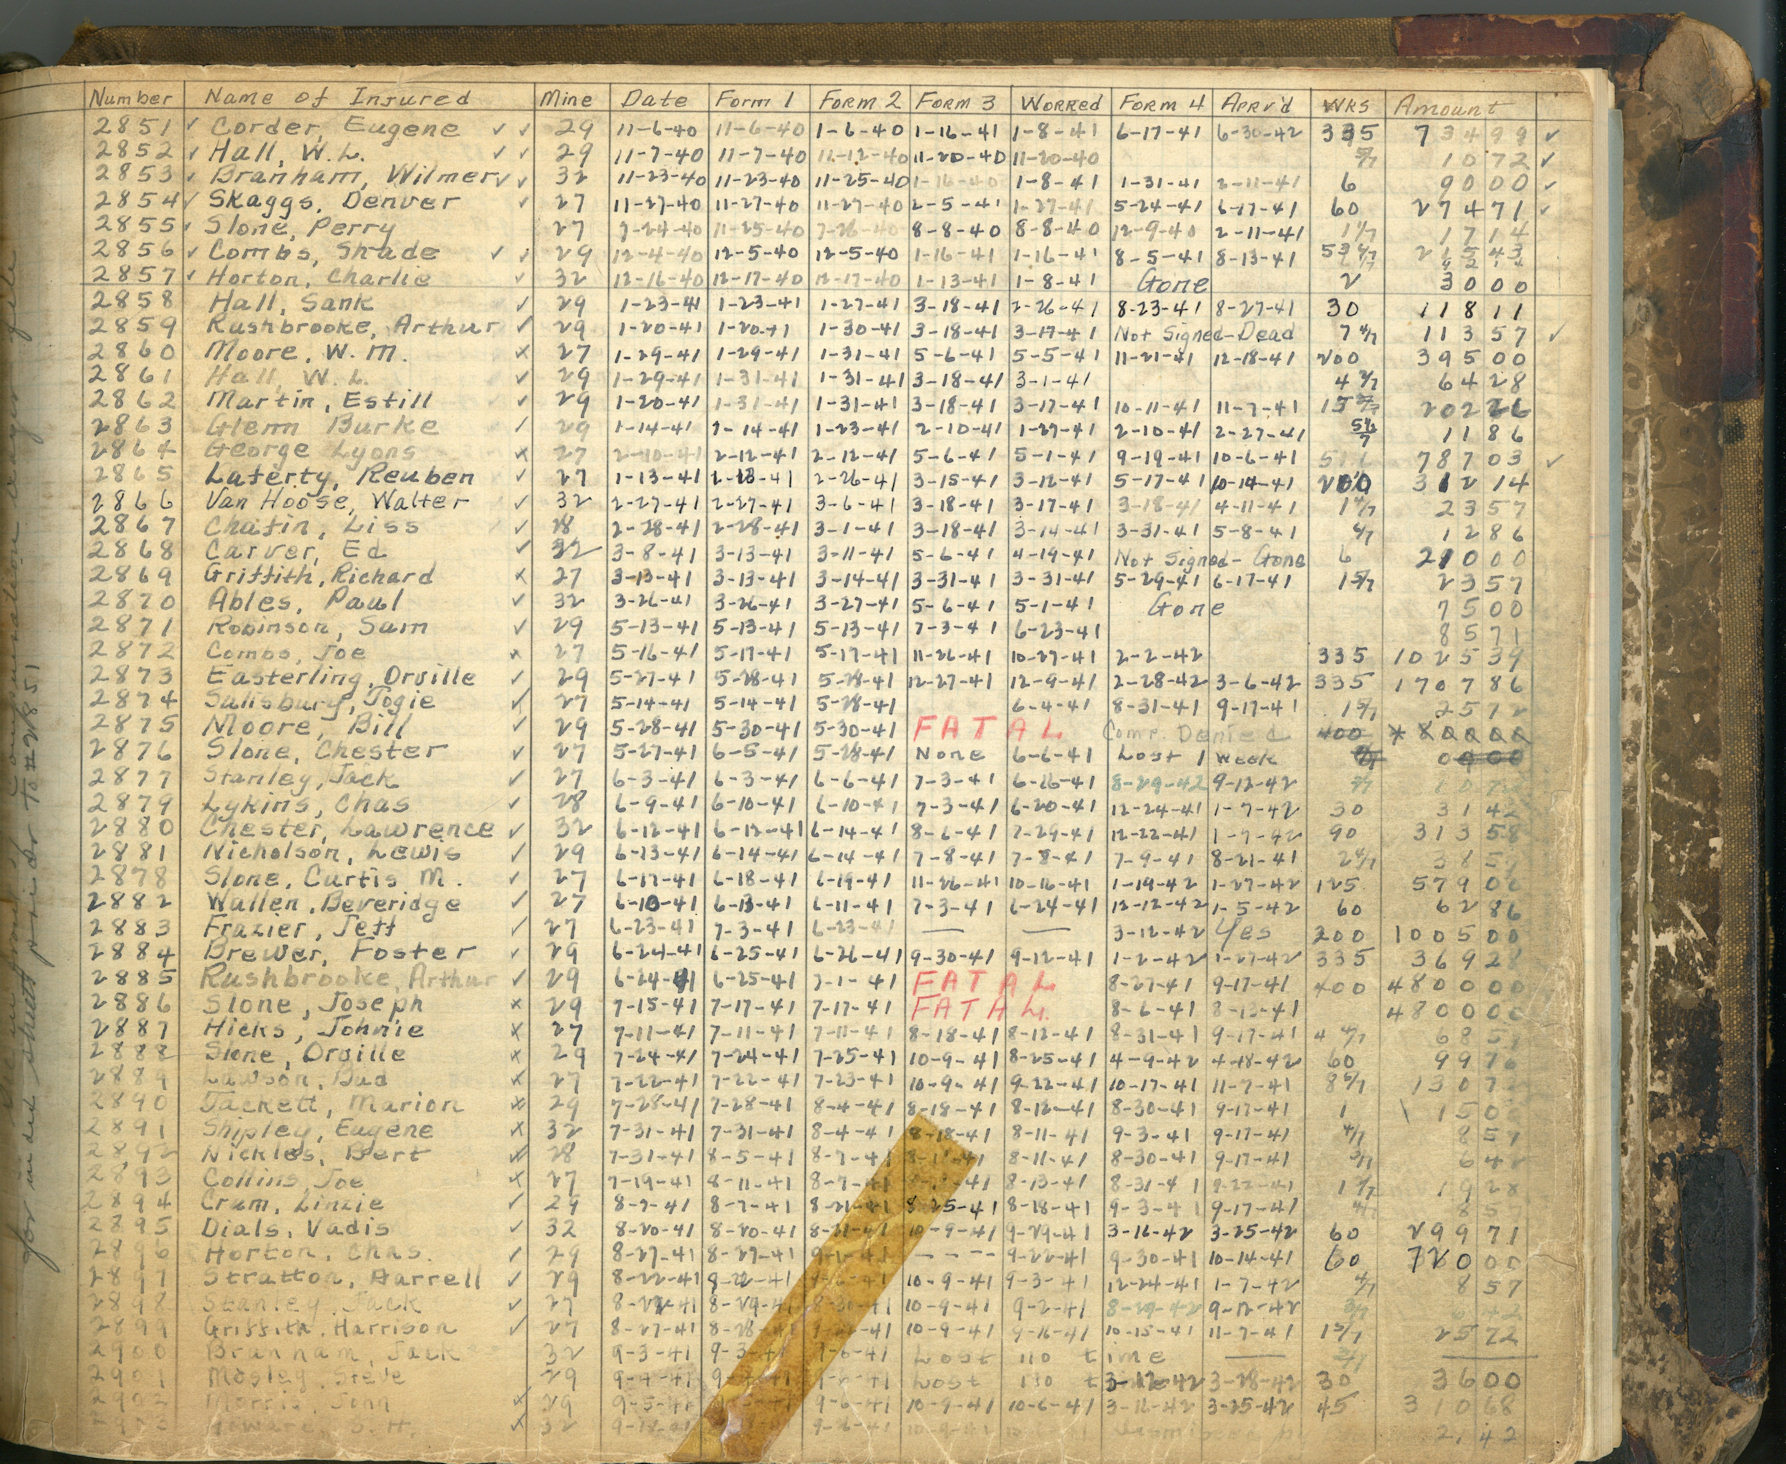 Number Name of Insured Mine Date Form 1 Form 2 Form 3 Worked Form 4 Appr'd Wks Amount
2851 ✓ Corder, Eugene ✓ ✓ 29 11-6-40 11-6-40 1-6-40 1-16-41 1-8-41 6-17-41 6-30-42 335 73499 ✓
2852 ✓ Hall, W.L. ✓ ✓ 29 11-7-40 11-7-40 11-12-40 11-20-40 11-20-40 5/7 1072 ✓
2853 ✓ Branham, Wilmer ✓ ✓ 32 11-23-40 11-23-40 11-25-40 1-16-40 1-8-41 1-31-41 2-11-41 6 9000 ✓
2854 ✓ Skaggs, Denver ✓ 27 11-27-40 11-27-40 11-27-40 2-5-41 1-27-41 5-24-41 6-17-41 60 27471 ✓
2855 ✓ Slone, Perry 27 7-24-40 11-25-40 7-26-40 8-8-40 8-8-40 12-9-40 2-11-41 1 1/7 1714
2856 ✓ Combs, Shade ✓ ✓ 29 12-4-40 12-5-40 12-5-40 1-16-41 1-16-41 8-5-41 8-13-41 21543
2857 ✓ Horton, Charlie ✓ 32 12-16-40 12-17-40 12-17-40 1-13-41 1-8-41 Gone 2 3000
2858 Hall, Sank ✓ 29 1-23-41 1-23-41 1-27-41 3-18-41 2-26-41 8-23-41 8-27-41 30 11811
2859 Rushbrooke, Arthur ✓ 29 1-20-41 1-20-41 1-30-41 3-18-41 3-17-41 Not Signed-Dead 7 4/7 11357 ✓
2860 Moore, W. M. x 27 1-29-41 1-29-41 1-31-41 5-6-41 5-5-41 11-21-41 12-18-41 200 39500
2861 Hall, W. L. ✓ 29 1-29-41 1-31-41 1-31-41 3-18-41 3-1-41 4 2/7 6428
2862 Martin, Estill ✓ 29 1-20-41 1-31-41 1-31-41 3-18-41 3-17-41 10-11-41 11-7-41 15 20226
2863 Glenn Burke ✓ 29 1-14-41 1-14-41 1-23-41 2-10-41 1-27-41 2-10-41 2-27-41 1186
2864 George Lyons x 27 2-10-41 2-12-41 2-12-41 5-6-41 5-1-41 9-19-41 10-6-41 78703 ✓
2865 Laferty, Reuben ✓ 27 1-13-41 2-18-41 2-26-41 3-15-41 3-12-41 5-17-41 10-14-41 200 31214
2866 Van Hoose, Walter ✓ 32 2-27-41 2-27-41 3-6-41 3-18-41 3-17-41 3-18-41 4-11-41 1 4/7 2357
2867 Chafin, Liss ✓ 28 2-28-41 2-28-41 3-1-41 3-18-41 3-14-41 3-31-41 5-8-41 6/7 1286
2868 Carver, Ed ✓ 32 3-8-41 3-13-41 3-11-41 5-6-41 4-19-41 Not Signed-Gone 6 21000
2869 Griffith, Richard x 27 3-13-41 3-13-41 3-14-41 3-31-41 3-31-41 5-29-41 6-17-41 1 5/7 2357
2870 Ables, Paul ✓ 32 3-26-41 3-26-41 3-27-41 5-6-41 5-1-41 Gone 7500
2871 Robinson, Sam ✓ 29 5-13-41 5-13-41 5-13-41 7-3-41 6-23-41 8571
2872 Combs, Joe x 27 5-16-41 5-17-41 5-17-41 11-26-41 10-27-41 2-2-42 335 102539
2873 Easterling, Orville ✓ 29 5-27-41 5-28-41 5-28-41 12-27-41 12-9-41 2-28-42 3-6-42 335 170786
2874 Salisbury, Jogie ✓ 27 5-14-41 5-14-41 5-28-41 6-4-41 8-31-41 9-17-41 1 5/7 2572
2875 Moore, Bill ✓ 29 5-28-41 5-30-41 5-30-41 FATAL Comp. Denied 400
2876 Slone, Chester ✓ 27 5-27-41 6-5-41 5-28-41 None 6-6-41 Lost 1 week
2877 Stanley, Jack ✓ 27 6-3-41 6-3-41 6-6-41 7-3-41 6-16-41 8-29-42 9-12-42
2879 Lykins, Chas ✓ 28 6-9-41 6-10-41 6-10-41 7-3-41 6-20-41 12-24-41 1-7-42 30 3142
2880 Chester, Lawrence ✓ 32 6-12-41 6-12-41 6-14-41 8-6-41 7-29-41 12-22-41 1-7-42 90 31358
2881 Nicholson, Lewis ✓ 29 6-13-41 6-14-41 6-14-41 7-8-41 7-8-41 7-9-41 8-21-41 2 4/7
2878 Slone, Curtis M. ✓ 27 6-17-41 6-18-41 6-19-41 11-26-41 10-16-41 1-19-42 1-27-42 125
2882 Wallen, Beveridge ✓ 27 6-10-41 6-13-41 6-11-41 7-3-41 6-24-41 12-12-42 1-5-42 60 6286
2883 Frazier, Jeff ✓ 27 6-23-41 7-3-41 6-23-41 — — 3-12-42 Yes 200 100500
2884 Brewer, Foster ✓ 29 6-24-41 6-25-41 6-26-41 9-30-41 9-12-41 1-2-42 1-27-42 335 36928
2885 Rushbrooke, Arthur ✓ 29 6-24-41 6-25-41 7-1-41 FATAL 8-27-41 9-17-41 400 480000
2886 Slone, Joseph x 29 7-15-41 7-17-41 7-17-41 FATAL 8-6-41 8-13-41 480000
2887 Hicks, Johnie x 27 7-11-41 7-11-41 7-11-41 8-18-41 8-12-41 8-31-41 9-17-41 4 4/7
2888 Slone, Orville x 29 7-24-41 7-24-41 7-25-41 10-9-41 8-25-41 4-9-42 4-18-42 60 9976
2889 Lawson, Bud x 27 7-22-41 7-22-41 7-23-41 10-9-41 9-22-41 10-17-41 11-7-41 8 5/7 13072
2890 Jackett, Marion x 29 7-28-41 7-28-41 8-4-41 8-18-41 8-12-41 8-30-41 9-17-41 1 1500
2891 Shipley, Eugene x 32 7-31-41 7-31-41 8-4-41 8-18-41 8-11-41 9-3-41 9-17-41 4/7 857
2892 Nickles, Bert x 28 7-31-41 8-5-41 8-7-41 8-11-41 8-30-41 9-17-41 3/7 642
2893 Collins, Joe x 27 7-19-41 8-11-41 8-13-41 8-31-41 9-22-41 1928
2894 Cram, Linzie ✓ 29 8-7-41 8-7-41 8-21-41 8-25-41 8-18-41 9-3-41 9-17-41 4/7 857
2895 Dials, Vadis ✓ 32 8-20-41 8-20-41 8-21-41 10-9-41 9-29-41 3-16-42 3-25-42 60 29971
2896 Horton, Chas. ✓ 29 8-27-41 8-27-41 ---- 9-22-41 9-30-41 10-14-41 60 72000
2897 Stratton, Harrell ✓ 29 8-22-41 8-22-41 10-9-41 9-3-41 12-24-41 1-7-42 4/7 857
2898 Stanley, Jack ✓ 27 8-28-41 8-29-41 8-30-41 10-9-41 9-2-41 8-29-42 9-12-42 3/7 642
2899 Griffith, Harrison ✓ 27 8-27-41 8-28-41 10-9-41 9-16-41 10-15-41 11-7-41 1 5/7 2572
2900 Branham, Jack 32 9-3-41 9-3-41 9-6-41 Lost no time —
2901 Mosley, Steve 29 9-4-41 Lost no time 3-17-42 3-28-42 30 3600
2902 Morris, John x 29 9-5-41 9-6-41 10-9-41 10-6-41 3-16-42 3-25-42 45 31068
2903 Howard, S. H. x 32
for inded sheets prior to #2851